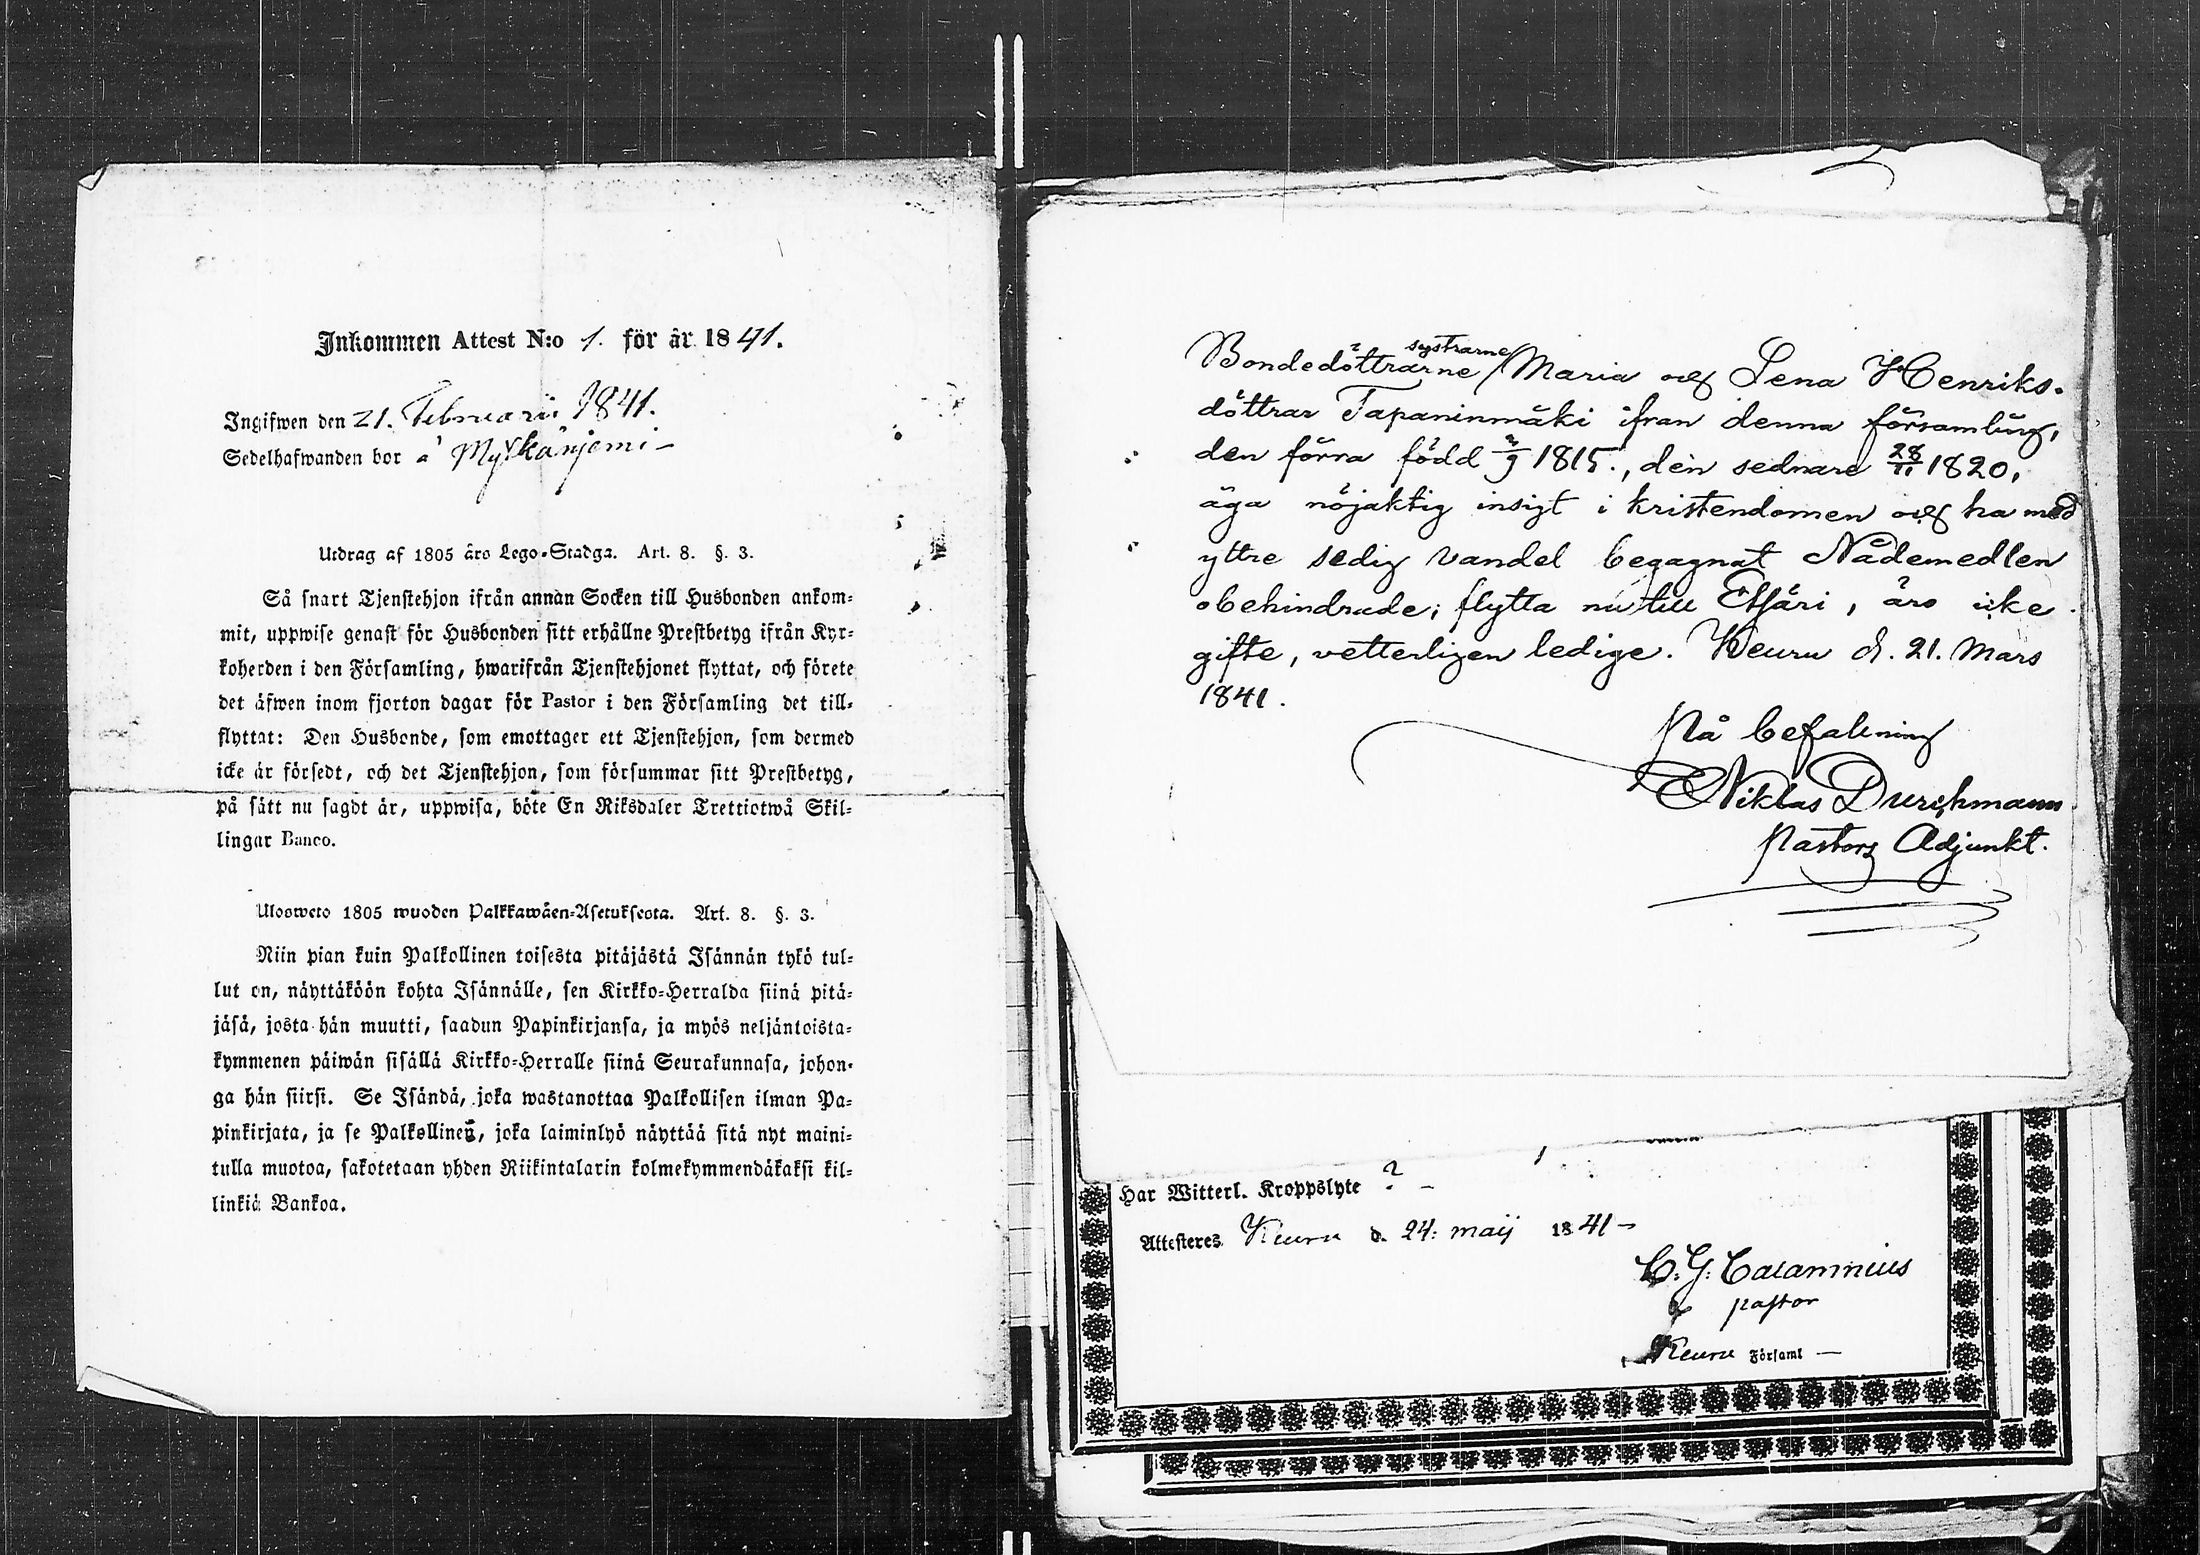 Inkommen Attest N:o 1. för år 1841.
Ingifwen den 21. Februarii 1841.
Sedelhafwanden bor å Myllkänjemi -
Utdrag af 1805 års Lego-Stadga. Art. 8. §. 3.
Så snart Tjenstehjon ifrån annan Socken till Husbonden ankom-
mit, uppwise genast för Husbonden sitt erhållne Prestbetyg ifrån Kyr-
koherden i den Församling, hwarifrån Tjenstehjonet flyttat, och förete
det äfwen inom fjorton dagar för Pastor i den Församling det till-
flyttat: Den Husbonde, som emottager ett Tjenstehjon, som dermed
icke är försedt, och det Tjenstehjon, som försummar sitt Prestbetyg,
på sätt nu sagdt är, uppwisa, böte En Riksdaler Trettiotwå Skil-
lingar Banco.
Ulosweto 1805 wuoden Palkkawäen-Asetuksesta. Art. 8. §. 3.
Niin pian kuin Palkollinen toisesta pitäjästä Isännän tykö tul-
lut on, näyttäköön kohta Isännälle, sen Kirkko-Herralda siinä pitä-
jäsä, josta hän muutti, saadun Papinkirjansa, ja myös neljäntoista-
kymmenen päiwän sisällä Kirkko-Herralle siinä Seurakunnasa, johon-
ga hän siirsi. Se Isändä, joka wastanottaa Palkollisen ilman Pa-
pinkirjata, ja se Palkollinen, joka laiminlyö näyttää sitä nyt maini-
tulla muotoa, sakotetaan yhden Riikintalarin kolmekymmendäkaksi kil-
linkiä Bankoa.
Bondedöttrarne systrarne Maria och Lena Henriks-
döttrar Tapaninmäki ifran denna församling,
den förra född 2/9 1815., den sednare 28/11 1820,
äga nöjaktig insigt i kristendomen och ha med
yttre sedig vandel begagnat Nademedlen
obehindrade; flytta nu till Etsäri, äro icke
gifte, vetterligen ledige. Keuru d. 21. Mars
1841.
På befallning
Niklas Durchmann
Pastors Adjunkt.
Har Witterl. Kroppslyte ? -
Attesteres Keuru d. 24: maij 1841 -
C. G: Calamnius
pastor
Keuru Församl -